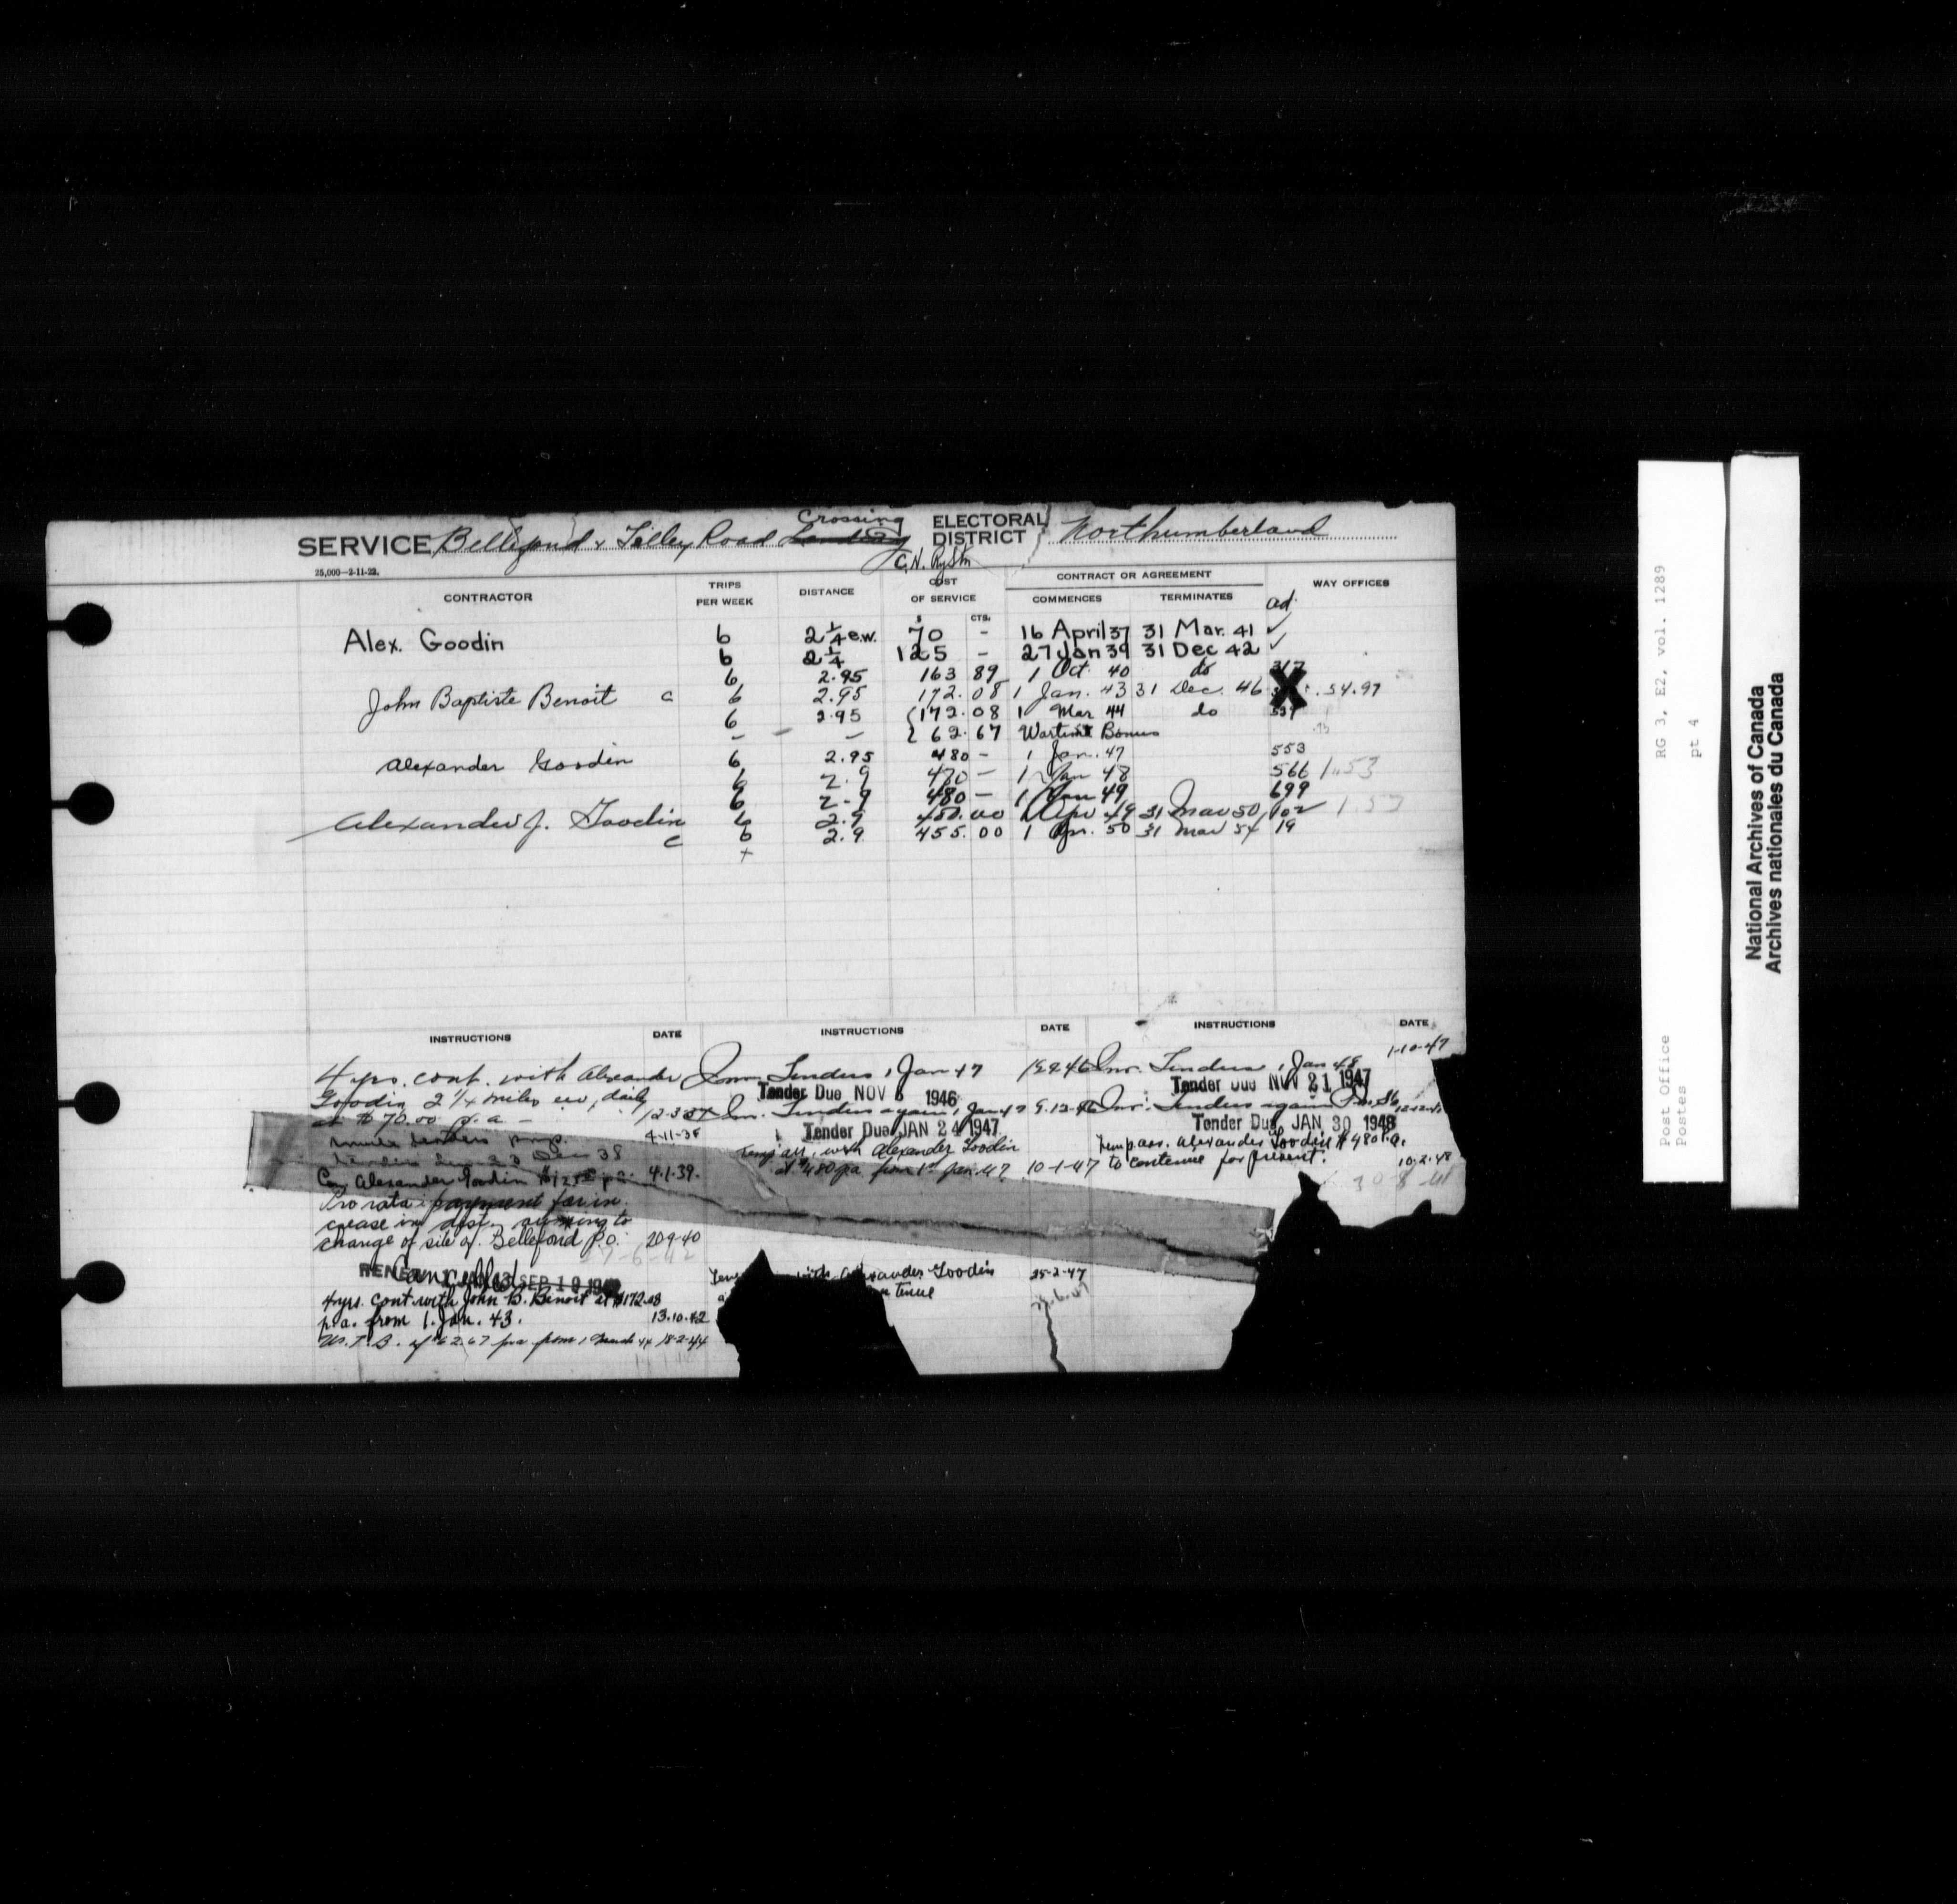 Crossing
SERVICE Bellefond & Tilley Road Landing ELECTORAL DISTRICT Northumberland
C.N. Ry Stn
25,000—2-11-22.
CONTRACTOR TRIPS PER WEEK DISTANCE COST OF SERVICE CONTRACT OR AGREEMENT COMMENCES TERMINATES WAY OFFICES
$ CTS. ad.
Alex. Goodin 6 2 1/4 e.w. 70 - 16 April 37 31 Mar. 41 ✓
6 2 1/4 125 - 27 Jan 39 31 Dec 42 ✓
6 2.95 163 89 1 Oct. 40 do 317
John Baptiste Benoit c 6 2.95 172.08 1 Jan. 43 31 Dec. 46 X 54.97
6 2.95 172.08 1 Mar 44 do
- - 62.67 Wartime Bonus
Alexander Goodin 6 2.95 480 - 1 Jan. 47 553
6 2.9 470 - 1 Jan 48 566 1.53
6 2.9 480 - 1 Jan 49 699
Alexander J. Goodin 6 2.9 450.00 1 Apr 49 31 Mar 50 102 1.53
c 6 2.9 455.00 1 Apr. 50 31 Mar 54 19
+
INSTRUCTIONS DATE
4 yrs. cont. with Alexander
Goodin 2 1/4 miles ew, daily
at $70.00 p.a. - 12-3-37
Invite tenders 4-11-38
Tenders due 23 Dec 38
Con Alexander Goodin $125 p.a. 4.1.39.
Pro rata payment for in
crease in dist. owing to
change of site of Bellefond P.O. 20-9-40
27-6-42
RENEW 1 JAN 43 SEP 10 194
Cancelled
4 yrs. cont. with John B. Benoit at $172.08
p.a. from 1. Jan. 43. 13.10.42
W.T.B. of $62.67 p.a. from 1 March 44 18-2-44
INSTRUCTIONS DATE
Inv. Tenders 1 Jan 47
Tender Due NOV 1946
Inv. Tenders again 1 Jan 47 9.12.46
Tender Due JAN 24 1947
Temp arr. with Alexander Goodin
at $480 pa from 1st Jan. 47 10-1-47
with Alexander Goodin 25-2-47
tinue
INSTRUCTIONS DATE
Inv. Tenders 1 Jan 48 1-10-47
Tender Due NOV 21 1947
Inv. Tenders again
Tender Due JAN 30 1948
Temp arr. Alexander Goodin $480 p.a.
to continue for present. 10-2-48
RG 3, E2, vol. 1289
pt 4
Post Office
Postes
National Archives of Canada
Archives nationales du Canada